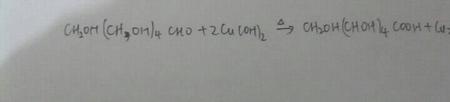 CH₂OH(CH₂OH)₄ CHO + 2Cu(OH)₂ —Δ→ CH₂OH(CHOH)₄ COOH + Cu₂